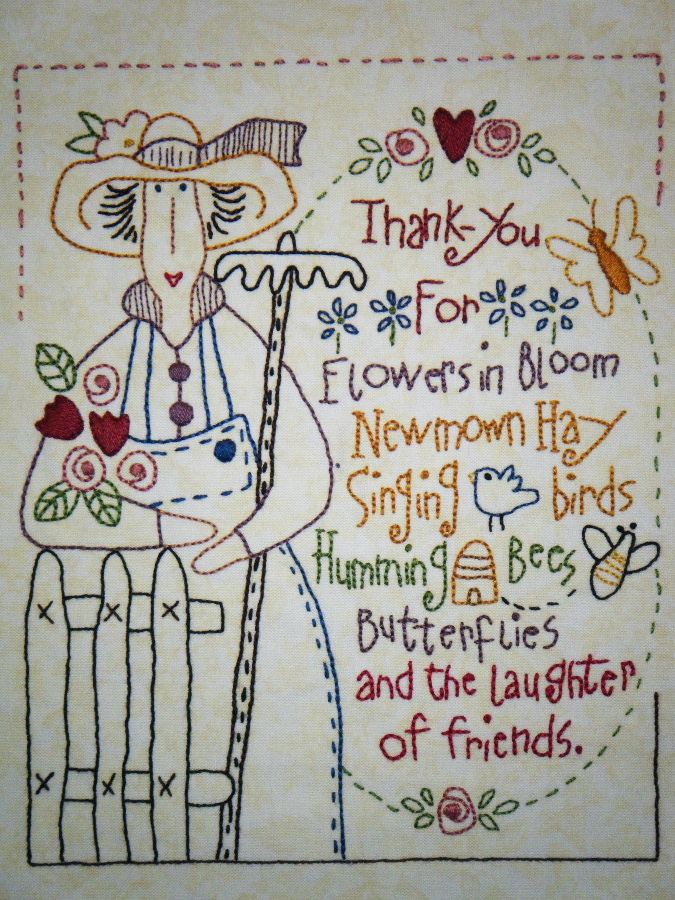 Thank-you
For
Flowers in Bloom
Newmown Hay
Singing birds
Humming Bees
Butterflies
and the laughter
of friends.